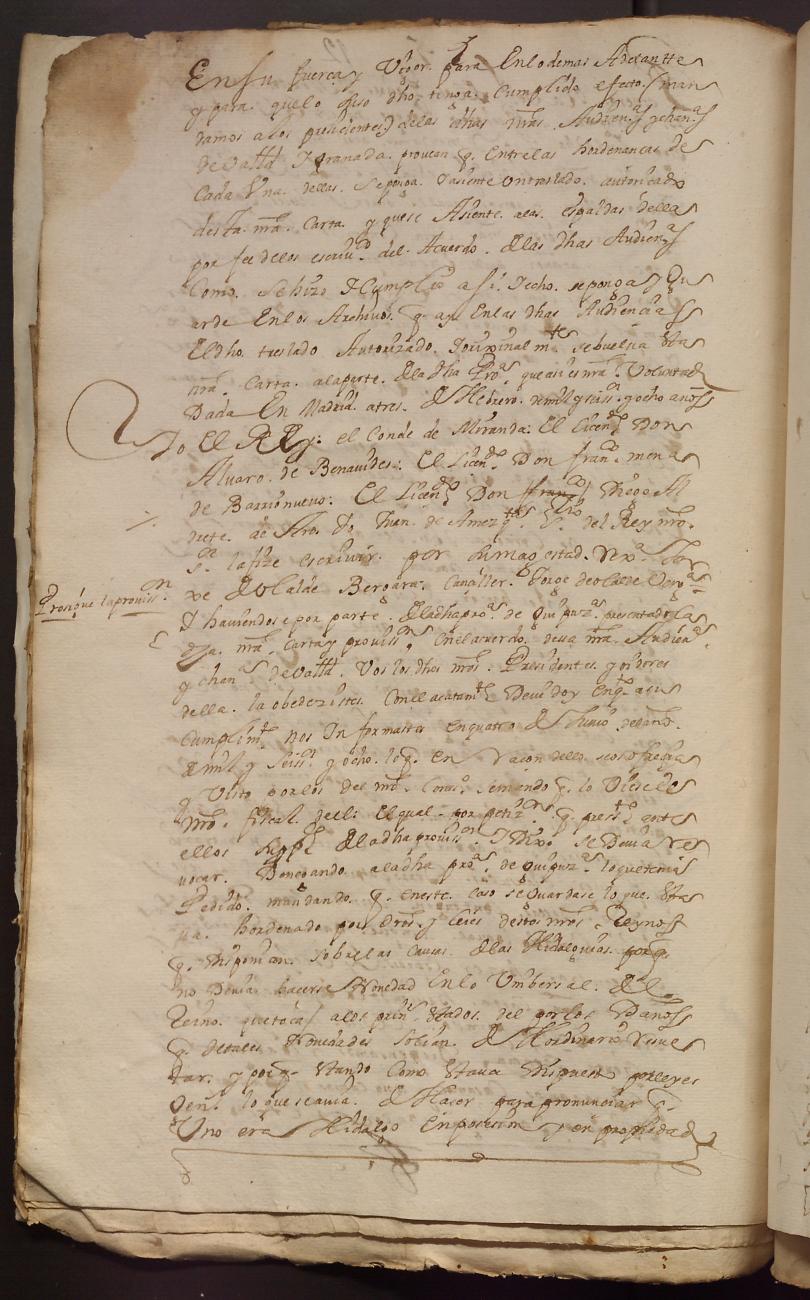 En su fuerça y Vigor. para En lo demas Adelantte
y para. que lo suso dho tenga. Cumplido efecto. (man
damos a los presidentes) de las dhas nras. Audien.ˢ y chan.ˢ
de Vallid Y granada. provean q. entre las hordenancas de
Cada Vna. dellas. Se ponga. Y asiente Vn traslado. autoricado
desta. nra. Carta. y que se Asiente. a las. espaldas della
por fee de los escriu.ᵒˢ del. Acuerdo. de las dhas Audien.ˢ
Como. Se hizo Y Cumplio asi. Y echo. se ponga Y Gu
arde En los Archivos. q. ay En las dhas Audiencias
El dho. treslado Autorizado. Y orixinal m.ᵗᵉ se buelua Esta
nra. Carta. a la parte. de la dha Pro.ᵃ, que asi es nra. Voluntad
Dada En Madrid. a tres. de Hebrero. de mil y seis.ˢ y ocho anos
Yo El REy. el Conde de Miranda: El licen.ᵈᵒ Don
Alvaro. de Benauides. El licen.ᵈᵒ Don fran.ᶜᵒ mena
de Barrionuevo. El Licen.ᵈᵒ Don fran.ᶜᵒ Diego Al
drete. de Aro. Yo Juan. de Amezq.ᵗᵃ S.ʳⁱᵒ del Rey nro.
s.ʳ la fize escriuir. por su magestad. Rex.ᵈᵃ Jor
xe de Olalde Bergara. Canciller. Jorge de olalde Verg.ᵃ
Prosigue la prouiss.ᵒⁿ
Y hauiendose por parte. de la dha pro.ᵃ de Guipuz.ᵃ presentado la
dha. nra. Carta y prouiss.ᵒⁿ, en el acuerdo. desa nra. Audien.ᵃ
y chan.ᵃ de Vallid. Vos los dhos nros. Presidentes y oidores
della. la obedezistes. Con el acatam.ᵗᵒ Deuido y en q.ᵗᵒ a su
Cumplim.ᵗᵒ nos Informastes en quatro de Junio deste año.
de mil y seis.ˢ y ocho. lo q. en Raçon dello se os ofrezia
y Visto por los del nro. Cons.º remiendo q. lo Viese el
nro. fiscal. del: el qual. por petiz.ᵒⁿ q. pres.ᵗᵒ ante
ellos Supp.ᶜᵒ de la dha prouiss.ᵒⁿ Y Dixo Se Deuia Re
uocar. Denegando a la dha pro.ᵃ de Guipuz.ᵃ lo que tenia
Pedido. mandando q. en este. caso se Guardase lo que. Esta
ua. hordenado por Dros. y leies destos nros. Reynos
q. disponian. sobre las causas. de las Hidalguias. porq.
no Deuia. hacerse Nouedad En lo Vnibersal. del
Reino. que toca a los prin.ˢ estados. del por los Daños
q. de tales Nouedades solian. de Hordinario Resul
tar. y porq. Estando Como Estaua Dispuesto por leyes
Gen.ˢ lo que se auia. de Hacer para pronunciar q.
Vno era Hidalgo En posesion y en propiedad